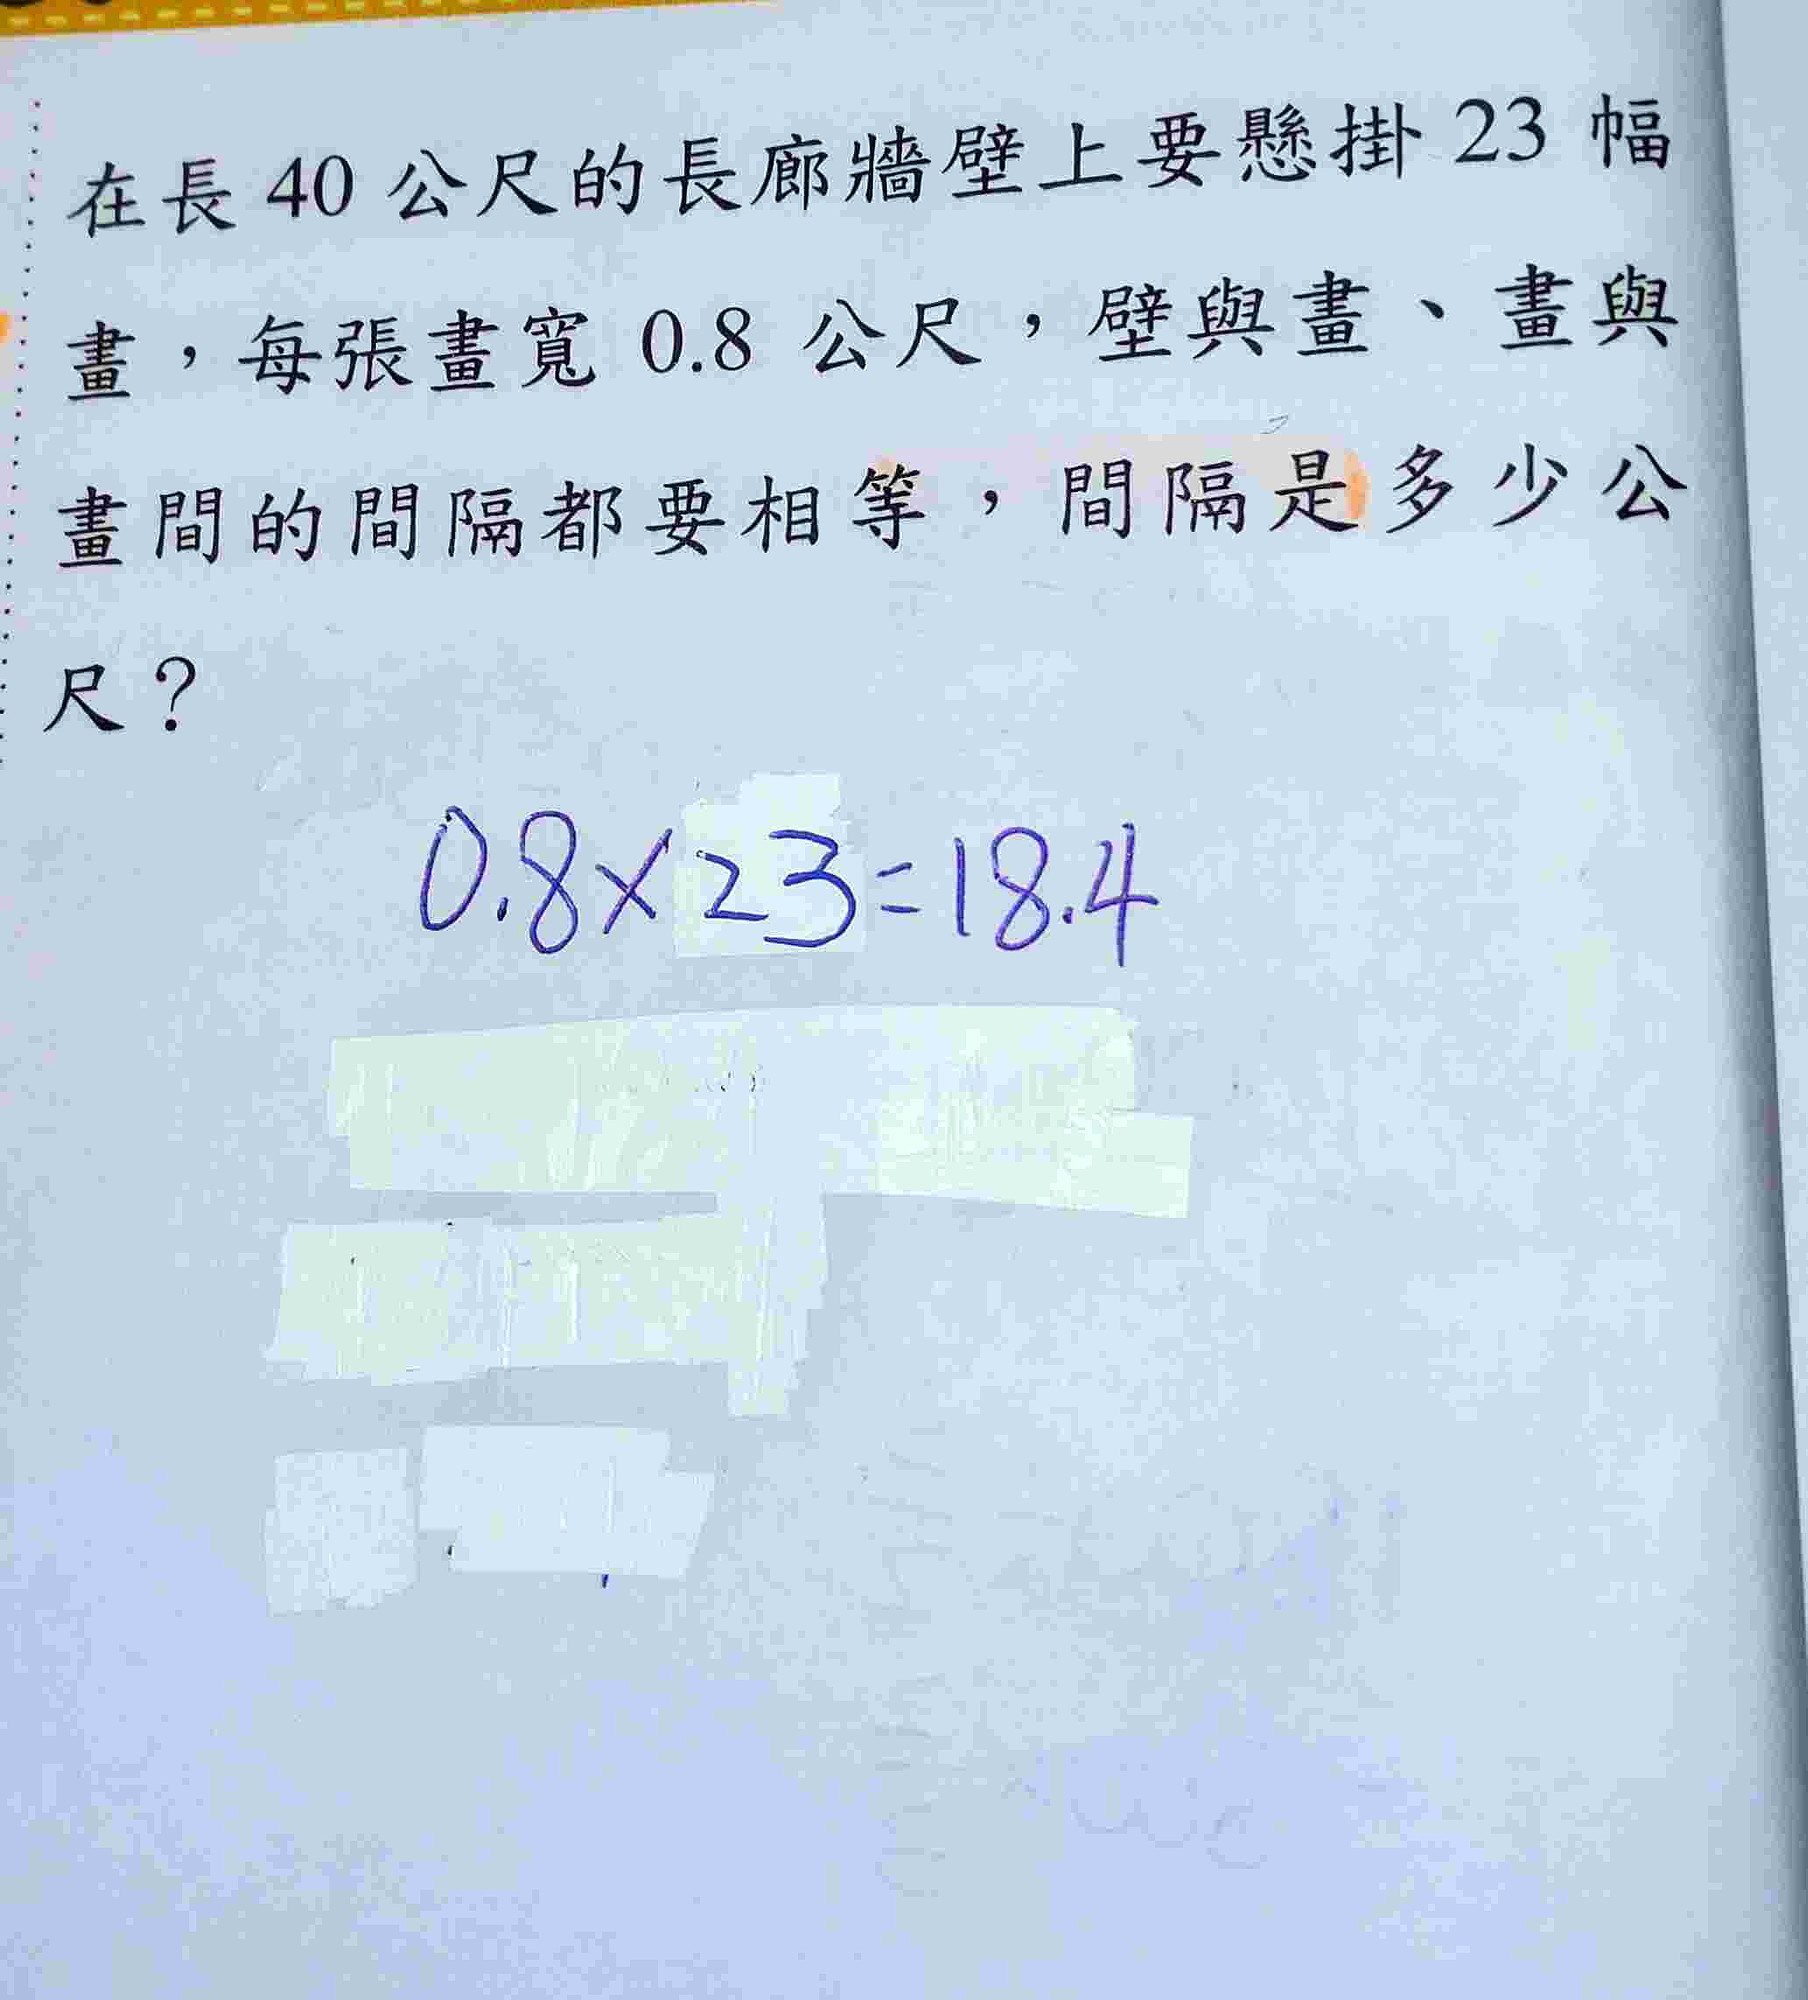 在長 40 公尺的長廊牆壁上要懸掛 23 幅
畫，每張畫寬 0.8 公尺，壁與畫、畫與
畫間的間隔都要相等，間隔是多少公
尺？
0.8×23=18.4